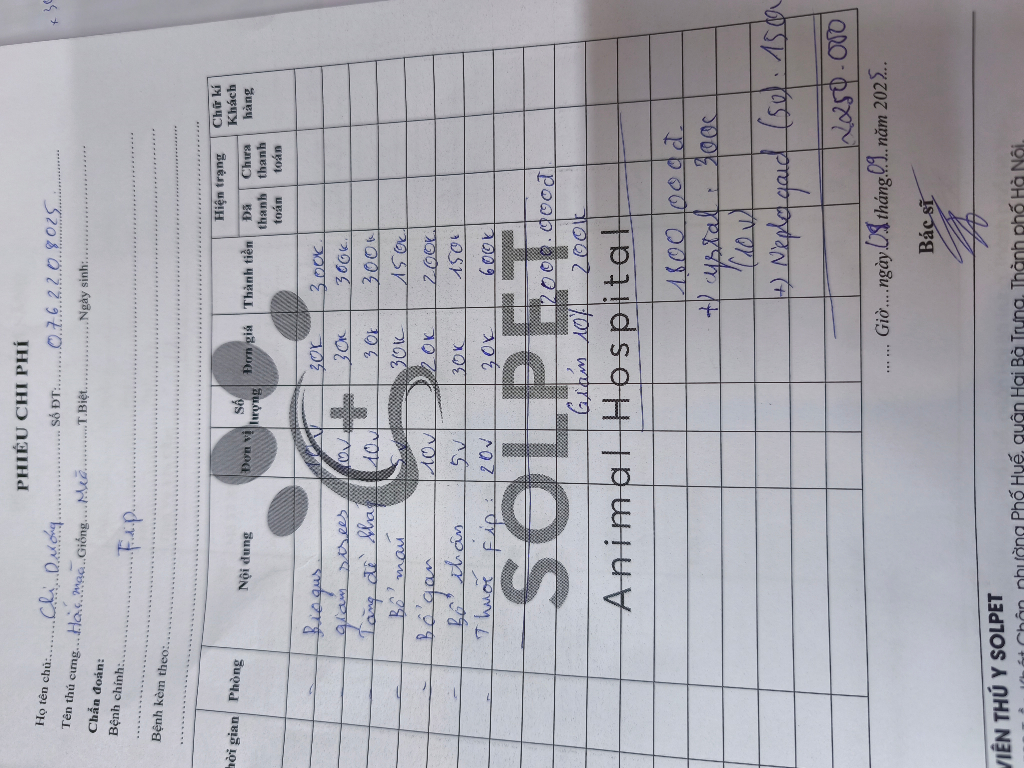 PHIẾU CHI PHÍ
Họ tên chủ: Chị Dương Số ĐT: 0762220805
Tên thú cưng Hắc miu Giống Mèo T.Biệt Ngày sinh:
Chẩn đoán:
Bệnh chính: F.i.p
Bệnh kèm theo:
hời gian Phòng Nội dung Đơn vị Số lượng Đơn giá Thành tiền Hiện trạng Chữ kí Khách hàng
Đã thanh toán Chưa thanh toán
- 10v 30k 300k
- giảm strees 10v 30k 300k
- Tăng đề kháng 10v 30k 300k
- Bổ máu 5v 30k 150k
- Bổ gan 10v 20k 200k
- Bổ thận 5v 30k 150k
- Thuốc Fip: 20v 30k 600k
2000.000đ
Giảm 10% 200k
1800 000đ
+) cystal: 300k
(10v)
+) Neplogaud (5v): 150k
2250.000
SOLPET
Animal Hospital
Giờ ngày 08 tháng 09 năm 2025
Bác sĩ
VIÊN THÚ Y SOLPET
phường Phố Huế, quận Hai Bà Trưng, Thành phố Hà Nội.